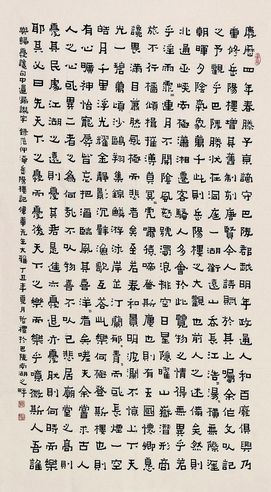 慶曆四年春滕子京謫守巴陵郡越明年政通人和百廢俱興乃
重修岳陽樓增其舊制刻唐賢今人詩賦於其上屬余作文以記
之予觀夫巴陵勝狀在洞庭一湖銜遠山吞長江浩浩湯湯橫無際涯
朝暉夕陰氣象萬千此則岳陽樓之大觀也前人之述備矣然則
北通巫峽南極瀟湘遷客騷人多會於此覽物之情得無異
乎淫雨霏霏連月不開陰風怒號濁浪排空日星隱曜山岳潛形商
旅不行檣傾楫摧薄暮冥冥虎嘯猿啼登斯樓也則有去國懷鄉憂
讒畏譏滿目蕭然感極而悲者矣至若春和景明波瀾不驚上下天
光一碧萬頃沙鷗翔集錦鱗游泳岸芷汀蘭郁郁青青而或長煙一空
皓月千里浮光躍金靜影沉璧漁歌互答此樂何極登斯樓也則
有心曠神怡寵辱皆忘把酒臨風其喜洋洋者矣嗟夫余嘗求古仁
人之心或異二者之為何哉不以物喜不以己悲居廟堂之高則
憂其民處江湖之遠則憂其君是進亦憂退亦憂然則何時而樂
耶其必曰先天下之憂而憂後天下之樂而樂乎噫微斯人吾誰
與歸 錄范仲淹岳陽樓記 丁丑年夏月 於巴陵南湖之畔